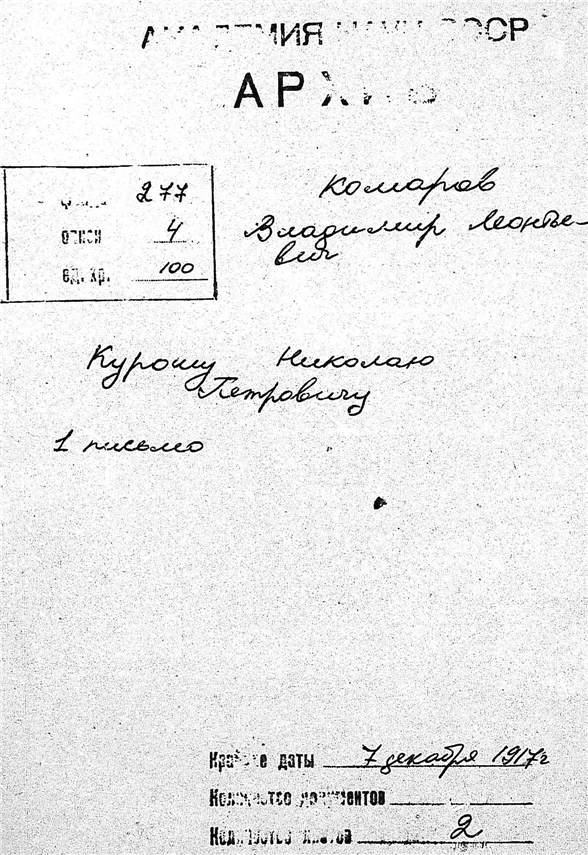 АКАДЕМИЯ НАУК СССР
АРХИВ
фонд 277
описи 4
ед. хр. 100
Комаров
Владимир Леонтье-
вич
Курошу Николаю
Петровичу
1 письмо
Крайние даты 7 декабря 1917г
Количество документов
Количество листов 2